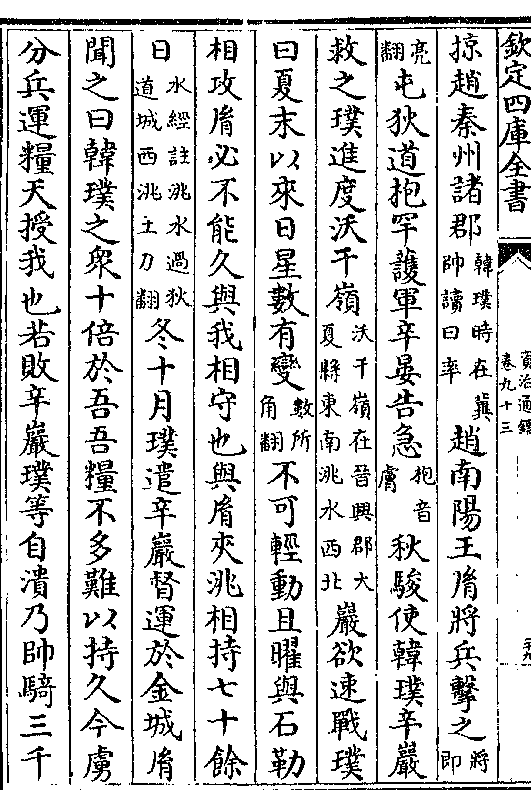 欽定四庫全書
資治通鑑
卷九十三
掠趙秦州諸郡韓璞時在冀帥讀曰率趙南陽王胤將兵擊之將即
亮翻屯狄道抱罕護軍辛晏告急抱音膚秋駿使韓璞辛巖
救之璞進度沃干嶺沃干嶺在晉興郡大夏縣東南洮水西北巖欲速戰璞
曰夏末以來日星數有變數所角翻不可輕動且曜與石勒
相攻胤必不能久與我相守也與胤夾洮相持七十餘
日水經註洮水過狄道城西洮土刀翻冬十月璞遣辛巖督運於金城胤
聞之曰韓璞之衆十倍於吾吾糧不多難以持久今虜
分兵運糧天授我也若敗辛巖璞等自潰乃帥騎三千